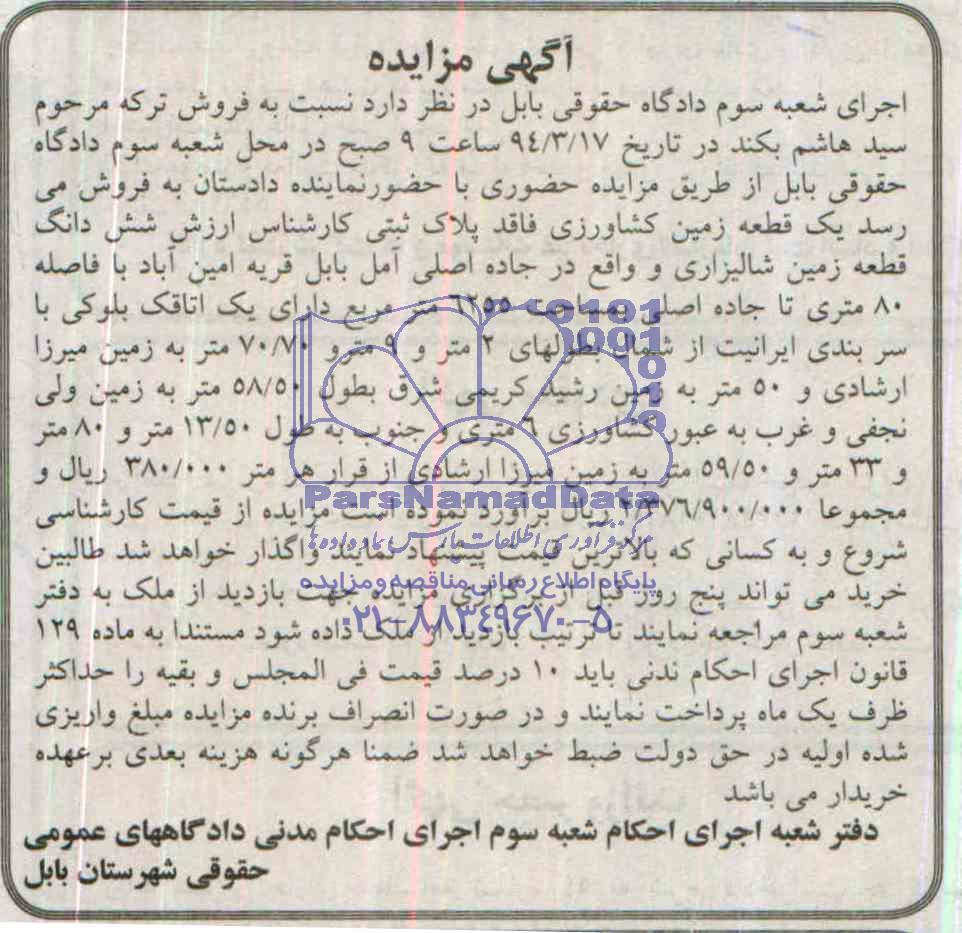 آگهی مزایده
اجرای شعبه سوم دادگاه حقوقی بابل در نظر دارد نسبت به فروش ترکه مرحوم
سید هاشم بکند در تاریخ ۹٤/۳/۱۷ ساعت ۹ صبح در محل شعبه سوم دادگاه
حقوقی بابل از طریق مزایده حضوری با حضورنماینده دادستان به فروش می
رسد یک قطعه زمین کشاورزی فاقد پلاک ثبتی کارشناس ارزش شش دانگ
قطعه زمین شالیزاری و واقع در جاده اصلی آمل بابل قریه امین آباد با فاصله
۸۰ متری تا جاده اصلی بمساحت ٦۲٥٥ متر مربع دارای یک اتاقک بلوکی با
سر بندی ایرانیت از شمال بطولهای ۲ متر و ۹ متر و ۷۰/۷۰ متر به زمین میرزا
ارشادی و ٥۰ متر به زمین رشید کریمی شرق بطول ٥۸/٥۰ متر به زمین ولی
نجفی و غرب به عبور کشاورزی ٦ متری و جنوب به طول ۱۳/٥۰ متر و ۸۰ متر
و ۳۳ متر و ٥۹/٥۰ متر به زمین میرزا ارشادی از قرار هر متر ۳۸۰/۰۰۰ ریال و
مجموعا ۲/۳۷٦/۹۰۰/۰۰۰ ریال برآورد نموده است مزایده از قیمت کارشناسی
شروع و به کسانی که بالاترین قیمت پیشنهاد نمایند واگذار خواهد شد طالبین
خرید می تواند پنج روز قبل از برگزاری مزایده جهت بازدید از ملک به دفتر
شعبه سوم مراجعه نمایند تا ترتیب بازدید از ملک داده شود مستندا به ماده ۱۲۹
قانون اجرای احکام ندنی باید ۱۰ درصد قیمت فی المجلس و بقیه را حداکثر
ظرف یک ماه پرداخت نمایند و در صورت انصراف برنده مزایده مبلغ واریزی
شده اولیه در حق دولت ضبط خواهد شد ضمنا هرگونه هزینه بعدی برعهده
خریدار می باشد
دفتر شعبه اجرای احکام شعبه سوم اجرای احکام مدنی دادگاههای عمومی
حقوقی شهرستان بابل
ParsNamadData
مرکز فرآوری اطلاعات پارس نماد داده ها
پایگاه اطلاع رسانی مناقصه و مزایده
۰۲۱-۸۸۳٤۹٦۷۰-۵